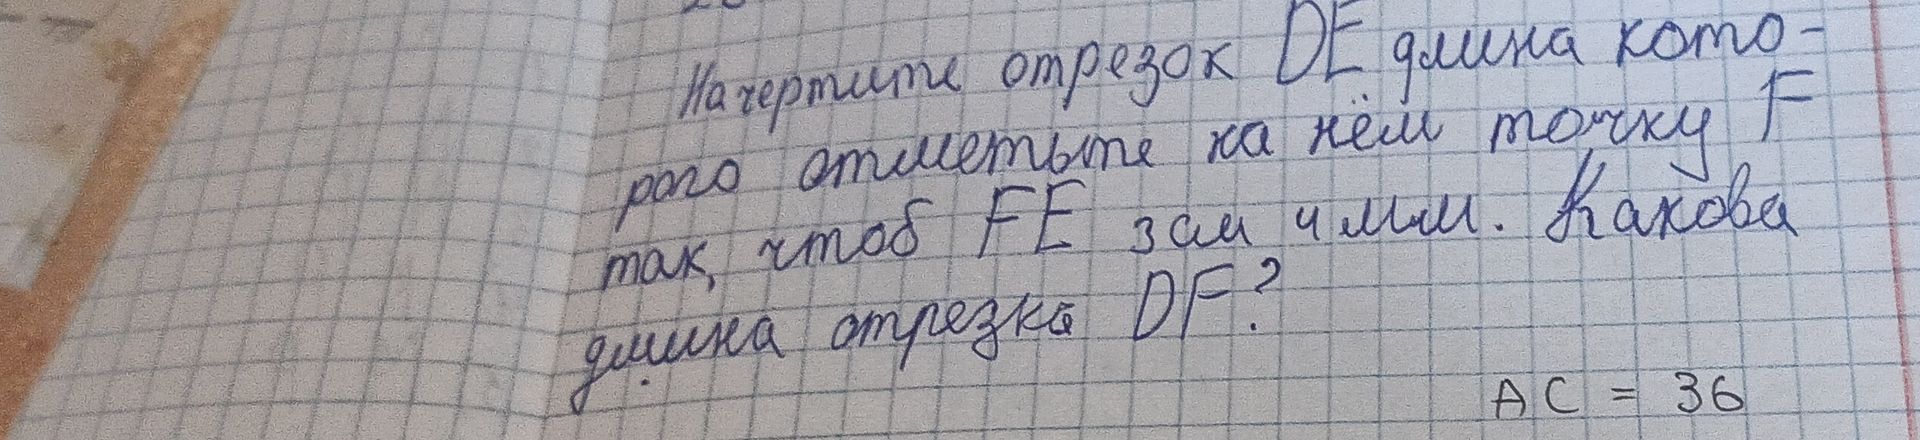 Начертите отрезок DE длина кото-
рого отметьте на нём точку F
так, чтоб FE 3см 4 мм. Какова
длина отрезка DF?
AC = 36